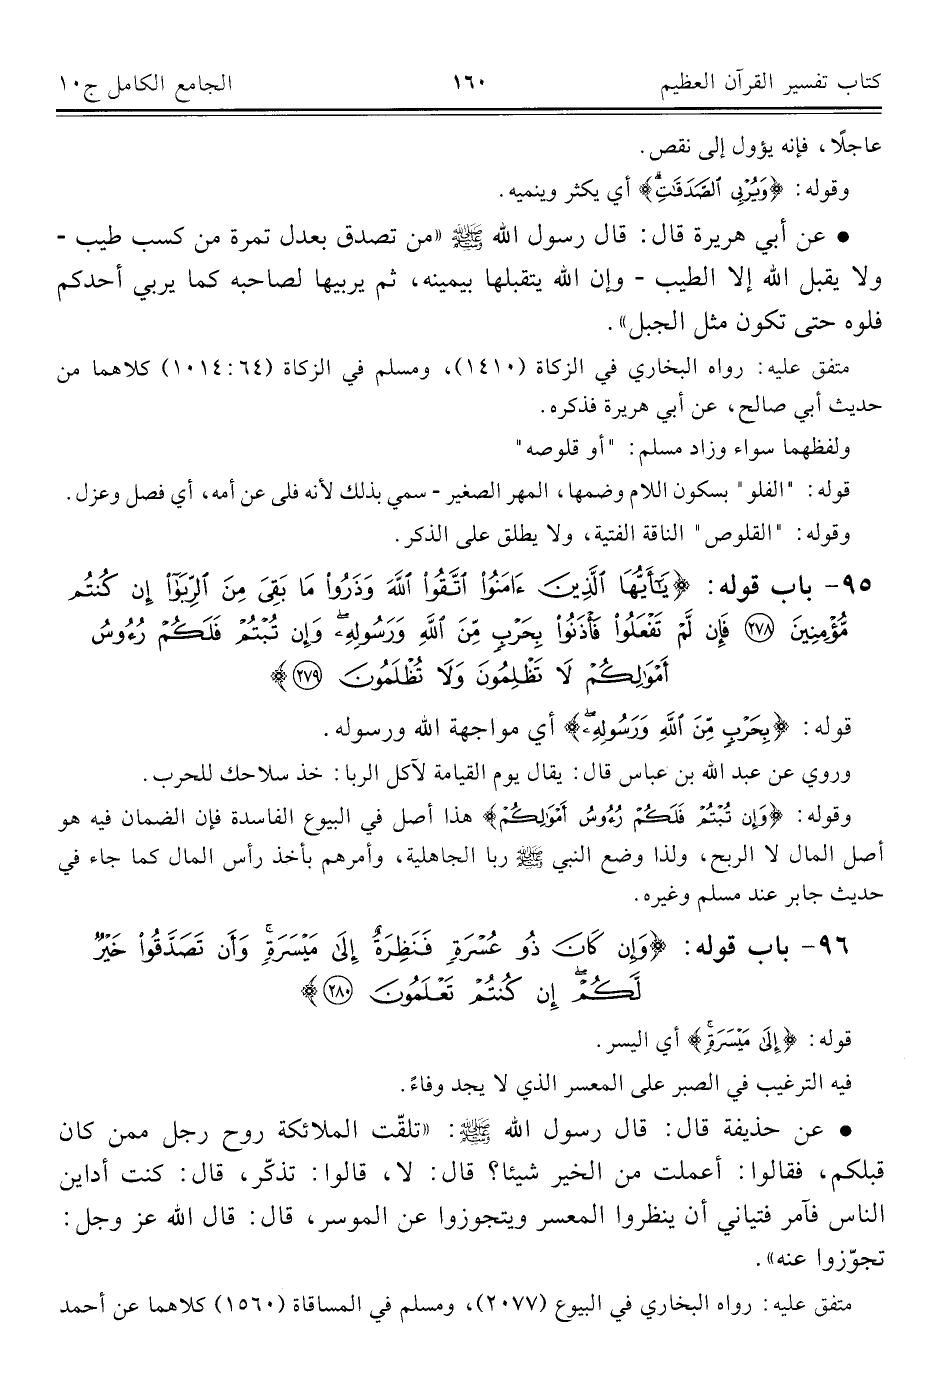 كتاب تفسير القرآن العظيم ١٦٠ الجامع الكامل ج١٠
عاجلًا، فإنه يؤول إلى نقص.
وقوله: ﴿وَيُرْبِي ٱلصَّدَقَٰتِۗ﴾ أي يكثر وينميه.
● عن أبي هريرة قال: قال رسول الله ﷺ «من تصدق بعدل تمرة من كسب طيب -
ولا يقبل الله إلا الطيب - وإن الله يتقبلها بيمينه، ثم يربيها لصاحبه كما يربي أحدكم
فلوه حتى تكون مثل الجبل».
متفق عليه: رواه البخاري في الزكاة (١٤١٠)، ومسلم في الزكاة (١٠١٤:٦٤) كلاهما من
حديث أبي صالح، عن أبي هريرة فذكره.
ولفظهما سواء وزاد مسلم: "أو قلوصه"
قوله: "الفلو" بسكون اللام وضمها، المهر الصغير - سمي بذلك لأنه فلى عن أمه، أي فصل وعزل.
وقوله: "القلوص" الناقة الفتية، ولا يطلق على الذكر.
٩٥- باب قوله: ﴿يَٰٓأَيُّهَا ٱلَّذِينَ ءَامَنُواْ ٱتَّقُواْ ٱللَّهَ وَذَرُواْ مَا بَقِيَ مِنَ ٱلرِّبَوٰٓاْ إِن كُنتُم
مُّؤْمِنِينَ ۝٢٧٨ فَإِن لَّمْ تَفْعَلُواْ فَأْذَنُواْ بِحَرْبٍ مِّنَ ٱللَّهِ وَرَسُولِهِۦۖ وَإِن تُبْتُمْ فَلَكُمْ رُءُوسُ
أَمْوَٰلِكُمْ لَا تَظْلِمُونَ وَلَا تُظْلَمُونَ ۝٢٧٩﴾
قوله: ﴿بِحَرْبٍ مِّنَ ٱللَّهِ وَرَسُولِهِۦۖ﴾ أي مواجهة الله ورسوله.
وروي عن عبد الله بن عباس قال: يقال يوم القيامة لآكل الربا: خذ سلاحك للحرب.
وقوله: ﴿وَإِن تُبْتُمْ فَلَكُمْ رُءُوسُ أَمْوَٰلِكُمْ﴾ هذا أصل في البيوع الفاسدة فإن الضمان فيه هو
أصل المال لا الربح، ولذا وضع النبي ﷺ ربا الجاهلية، وأمرهم بأخذ رأس المال كما جاء في
حديث جابر عند مسلم وغيره.
٩٦- باب قوله: ﴿وَإِن كَانَ ذُو عُسْرَةٍ فَنَظِرَةٌ إِلَىٰ مَيْسَرَةٍۚ وَأَن تَصَدَّقُواْ خَيْرٌ
لَّكُمْۖ إِن كُنتُمْ تَعْلَمُونَ ۝٢٨٠﴾
قوله: ﴿إِلَىٰ مَيْسَرَةٍۚ﴾ أي اليسر.
فيه الترغيب في الصبر على المعسر الذي لا يجد وفاءً.
● عن حذيفة قال: قال رسول الله ﷺ: «تلقّت الملائكة روح رجل ممن كان
قبلكم، فقالوا: أعملت من الخير شيئا؟ قال: لا، قالوا: تذكّر، قال: كنت أداين
الناس فآمر فتياني أن ينظروا المعسر ويتجوزوا عن الموسر، قال: قال الله عز وجل:
تجوّزوا عنه».
متفق عليه: رواه البخاري في البيوع (٢٠٧٧)، ومسلم في المساقاة (١٥٦٠) كلاهما عن أحمد